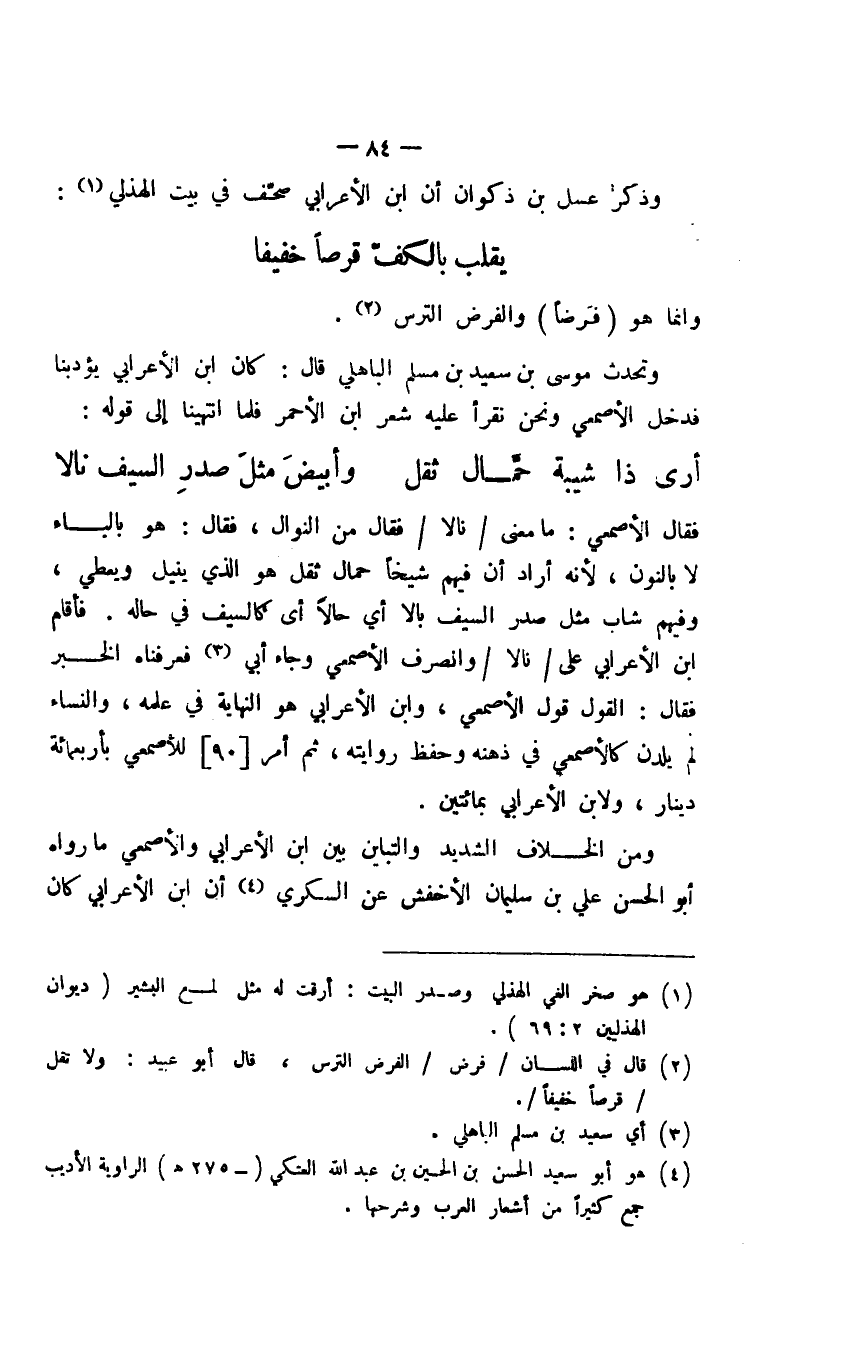 — ٨٤ —
وذكر عسل بن ذكوان أن ابن الأعرابي صحّف في بيت الهذلي (١) :
يقلب بالكفّ قرصاً خفيفا
وانما هو ( فَرضاً ) والفرض الترس (٢) .
وتحدث موسى بن سعيد بن مسلم الباهلي قال : كان ابن الأعرابي يؤدبنا
فدخل الأصمعي ونحن نقرأ عليه شعر ابن الأحمر فلما انتهينا إلى قوله :
أرى ذا شيبة حمَّال ثقل وأبيضَ مثلَ صدرِ السيف نالا
فقال الأصمعي : ما معنى / نالا / فقال من النوال ، فقال : هو بالباء
لا بالنون ، لأنه أراد أن فيهم شيخاً حمال ثقل هو الذي ينيل ويعطي ،
وفيهم شاب مثل صدر السيف بالا أي حالاً أى كالسيف في حاله . فأقام
ابن الأعرابي على / نالا / وانصرف الأصمعي وجاء أبي (٣) فعرفناه الخبر
فقال : القول قول الأصمعي ، وابن الأعرابي هو النهاية في علمه ، والنساء
لم يلدن كالأصمعي في ذهنه وحفظ روايته ، ثم أمر [٩٠] للأصمعي بأربعمائة
دينار ، ولابن الأعرابي بمائتين .
ومن الخلاف الشديد والتباين بين ابن الأعرابي والأصمعي ما رواه
أبو الحسن علي بن سليمان الأخفش عن السكري (٤) أن ابن الأعرابي كان
(١) هو صخر الغي الهذلي وصدر البيت : أرقت له مثل لمع البشير ( ديوان
الهذليين ٢ : ٦٩ ) .
(٢) قال في اللسان / فرض / الفرض الترس ، قال أبو عبيد : ولا تقل
/ قرصاً خفيفاً / .
(٣) أي سعيد بن مسلم الباهلي .
(٤) هو أبو سعيد الحسن بن الحسين بن عبد الله العتكي ( ـ ٢٧٥ ه ) الراوية الأديب
جمع كثيراً من أشعار العرب وشرحها .